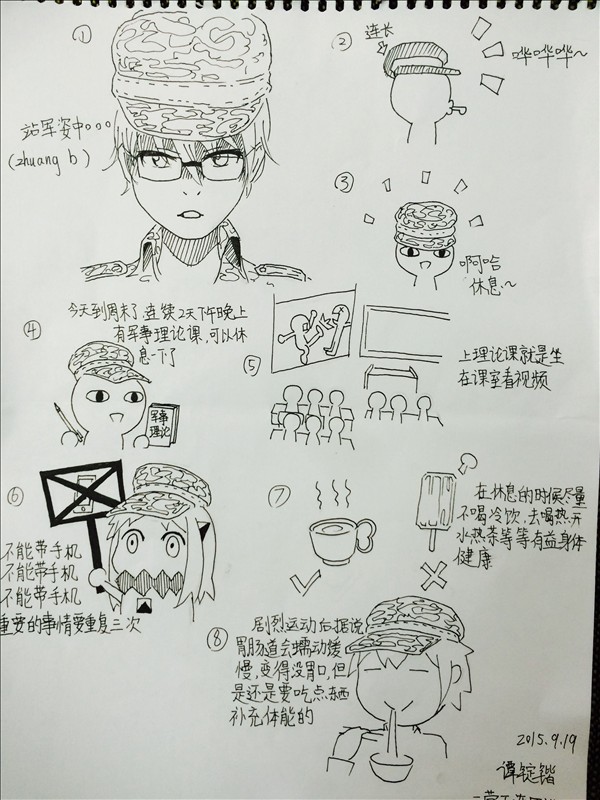 ①
站军姿中。。。
(zhuang b)
②
连长
哗哗哗~
③
啊哈
休息~
④
今天到周末了.连续2天下午晚上
有军事理论课,可以休
息一下了
军事
理论
⑤
上理论课就是坐
在课室看视频
⑥
不能带手机
不能带手机
不能带手机
重要的事情要重复三次
⑦
在休息的时候尽量
不喝冷饮,去喝热开
水热茶等等有益身体
健康
⑧
剧烈运动后据说
胃肠道会蠕动缓
慢,变得没胃口,但
是还是要吃点东西
补充体能的
2015.9.19
谭锭锴